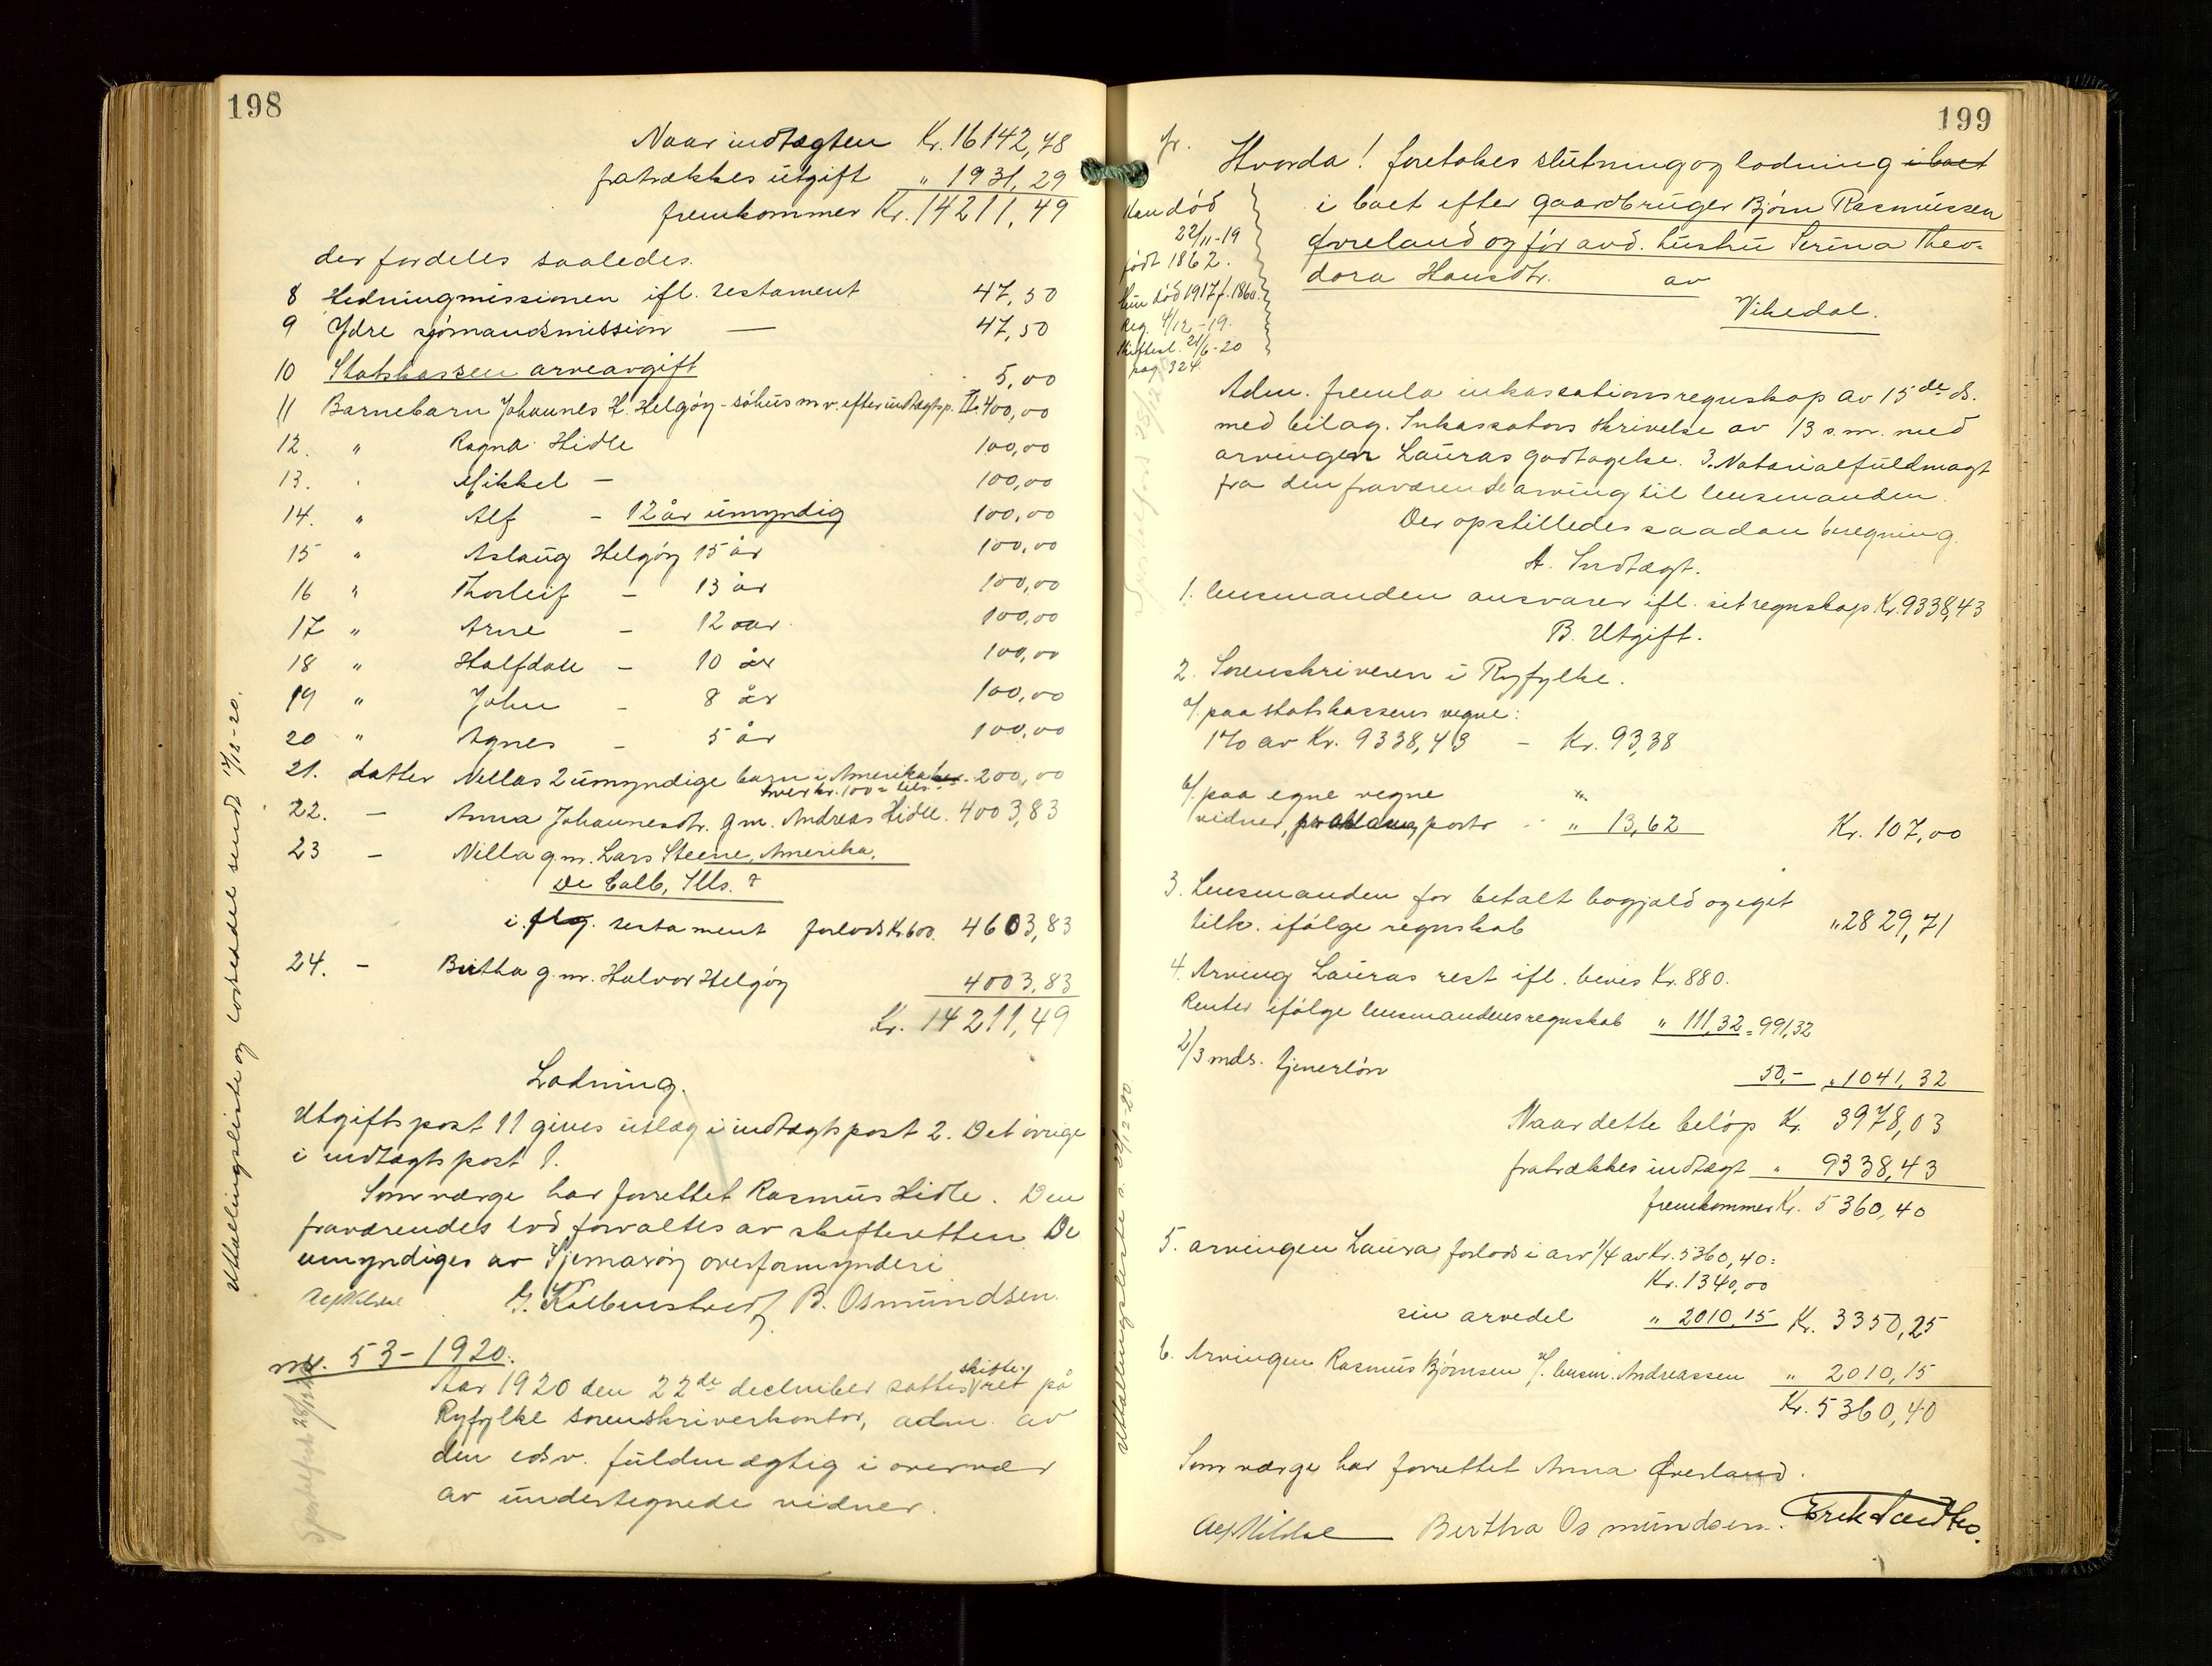 198
Naar indtægten Kr. 16142,78
fratrækkes utgift " 1931,29
fremkommer Kr. 14211,49
der fordeles saaledes.
8 Hedningmissionen ifl. testament 47,50
9 Ydre sjømandsmission — 47,50
10 Statskassen arveavgift 5,00
11 Barnebarn Johannes H. Helgøy - søhus m.v. efter indtægtsp. II 400,00
12. " Ragna Hidle 100,00
13. " Mikkel — 100,00
14. " Alf - 12 år umyndig 100,00
15 " Aslaug Helgøy 15 år 100,00
16 " Thorleif - 13 år 100,00
17 " Arne - 12 aar 100,00
18 " Halfdan - 10 år 100,00
19 " John - 8 år 100,00
20 " Agnes - 5 år 100,00
21. datter Nillas 2 umyndige barn i Amerika 200,00
hver kr. 100 = tils.
22. — Anna Johannesdtr. g.m. Andreas Hidle. 4003,83
23 — Nilla g.m. Lars Steene, Amerika,
De Calb, Ills. ?
i. flg. testament forlods Kr. 600. 4603,83
24. — Bertha g.m. Halvor Helgøy 4003,83
Kr. 14211,49
Lodning.
Utgiftspost 11 gives utlæg i indtægtspost 2. Det øvrige
i indtægtspost 1.
Som værge har forrettet Rasmus Hidle. Den
fraværendes lod forvaltes av skifteretten. De
umyndiges av Sjernarøy overformynderi
B. Osmundsen.
Uttælingsliste og lodseddel sendt 17/12-20.
nr. 53 - 1920.
Aar 1920 den 22de december sattes skifteret på
Ryfylke sorenskriverkontor, adm. av
den edsv. fuldmægtig i overvær
av undertegnede vidner.
199
Hvorda! foretokes slutning og lodning i boet
i boet efter gaardbruger Bjørn Rasmussen
Øvreland og før avd. hustru Serina Theo-
dora Hansdtr. av
Vikedal.
Han død
22/11-19
født 1862.
Hun død 1917 f. 1860.
Reg. 4/12-19.
Skiftesl. 21/6-20
pag. 324.
Adm. fremla inkassationsregnskap av 15de ds.
med bilag. Inkassators skrivelse av 13 s.m. med
arvingen Lauras godtagelse. 3. Notarialfuldmagt
fra den fraværende arving til lensmanden.
Der opstilledes saadan beregning.
A. Indtægt.
1. lensmanden ansvarer ifl. sit regnskap Kr. 9338,43
B. Utgift.
2. Sorenskriveren i Ryfylke.
a/. paa statskassens vegne:
1% av Kr. 9338,43 - Kr. 93,38
b/. paa egne vegne
vidner, porto " 13,62 Kr. 107,00
3. Lensmanden for betalt bogjæld og eget
tilk. ifølge regnskab " 2829,71
4. Arving Lauras rest ifl. bevis Kr. 880.
Renter ifølge lensmandens regnskab " 111,32 = 991,32
2/3 mds. tjenerløn 50,- " 1041,32
Naar dette beløp Kr. 3978,03
fratrækkes indtægt " 9338,43
fremkommer Kr. 5360,40
5. arvingen Laura forlods i arv 1/4 av Kr. 5360,40 =
Kr. 1340,00
sin arvedel " 2010,15 Kr. 3350,25
6. Arvingen Rasmus Bjørnsen v/. lensm. Andreassen " 2010,15
Kr. 5360,40
Som værge har forrettet Anna Øverland.
Bertha Osmundsen.
Uttællingsliste s. 22/12-20